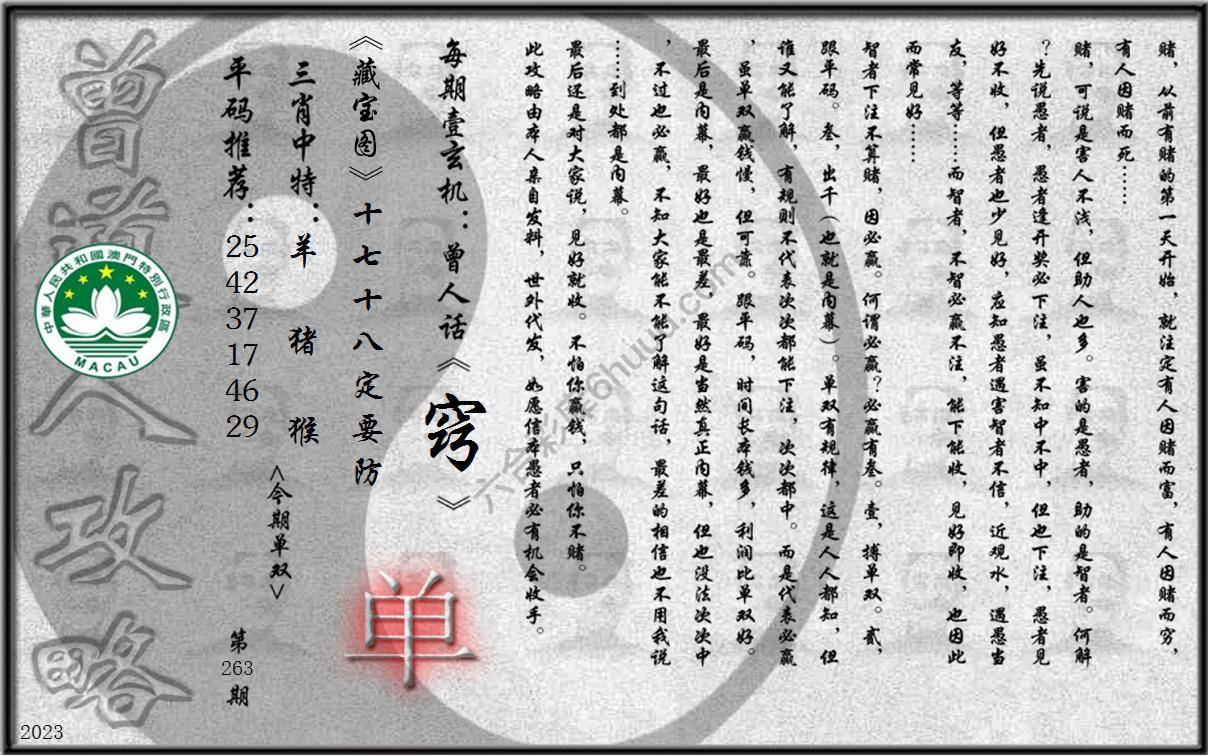 赌，从前有赌的第一天开始，就注定有人因赌而富，有人因赌而穷，
有人因赌而死……
赌，可说是害人不浅，但助人也多。害的是愚者，助的是智者。何解
？先说愚者，愚者逢开奖必下注，虽不知中不中，但也下注，愚者见
好不收，但愚者也少见好，应知愚者遇害智者不信，近观水，遇愚当
友，等等……而智者，不智必赢不注，能下能收，见好即收，也因此
而常见好……
智者下注不算赌，因必赢。何谓必赢？必赢有叁。壹，搏单双。贰，
跟平码。叁，出千（也就是内幕）。单双有规律，这是人人都知，但
谁又能了解，有规则不代表次次都能下注，次次都中。而是代表必赢
，虽单双赢钱慢，但可靠。跟平码，时间长本钱多，利润比单双好。
最后是内幕，最好也是最差，最好是当然真正内幕，但也没法次次中
，不过也必赢，不知大家能不能了解这句话，最差的相信也不用我说
……到处都是内幕。
最后还是对大家说，见好就收。不怕你赢钱，只怕你不赌。
此攻略由本人亲自发料，世外代发，如愿信本愚者必有机会收手。
每期壹玄机：曾人话《窍》
《藏宝图》十七十八定要防
三肖中特：羊 猪 猴
平码推荐：25 42 37 17 46 29
<今期单双>
单
第263期
曾道人攻略
中華人民共和國澳門特別行政區
MACAU
六合彩库6huuu.com
2023